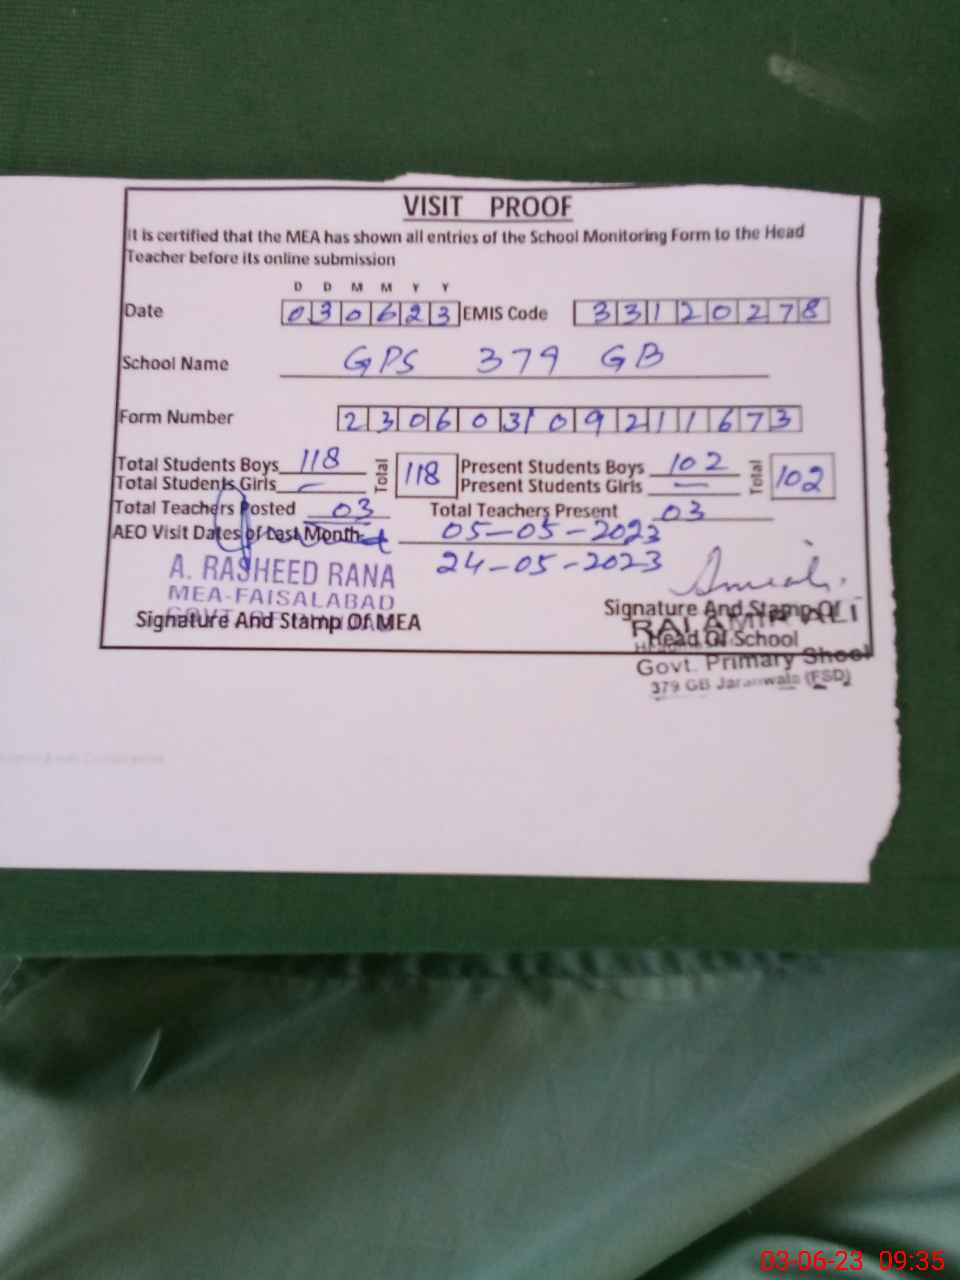 VISIT PROOF
It is certified that the MEA has shown all entries of the School Monitoring Form to the Head
Teacher before its online submission
D D M M Y Y
Date 030623 EMIS Code 33120278
School Name GPS 379 GB
Form Number 230603109211673
Total Students Boys 118 Total 118 Present Students Boys 102 Total 102
Total Students Girls — Present Students Girls —
Total Teachers Posted 03 Total Teachers Present 03
AEO Visit Dates of Last Month 05-05-2023
24-05-2023
A. RASHEED RANA
MEA-FAISALABAD
Signature And Stamp Of MEA
Signature And Stamp Of
Head Of School
Govt. Primary Shool
379 GB Jaranwala (FSD)
03-06-23 09:35